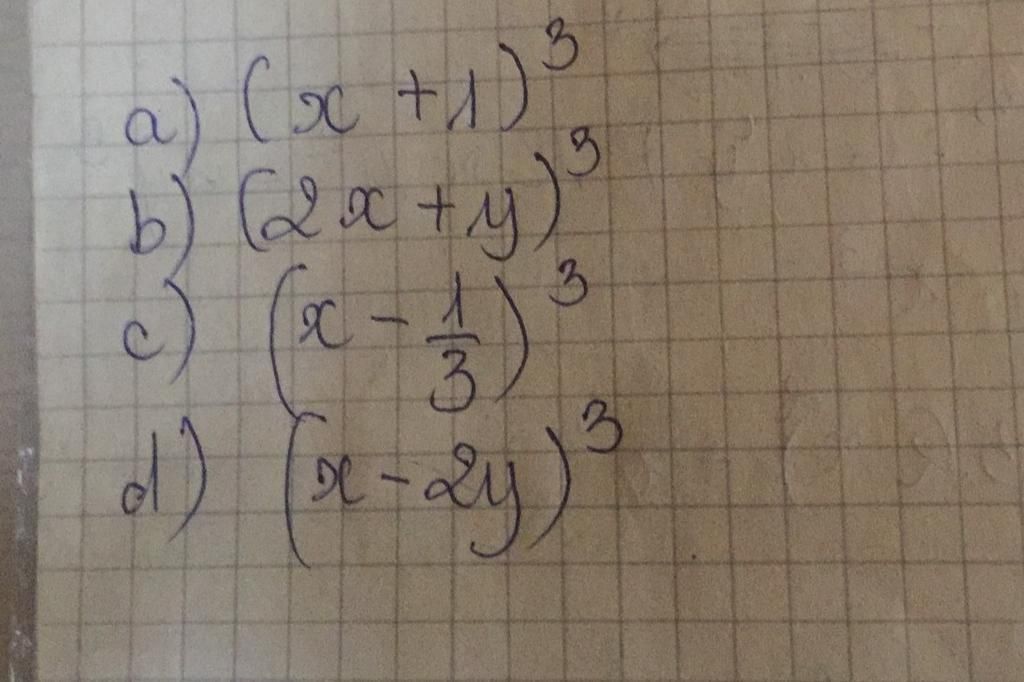 a) (x + 1)³
b) (2x + y)³
c) (x - 1/3)³
d) (x - 2y)³